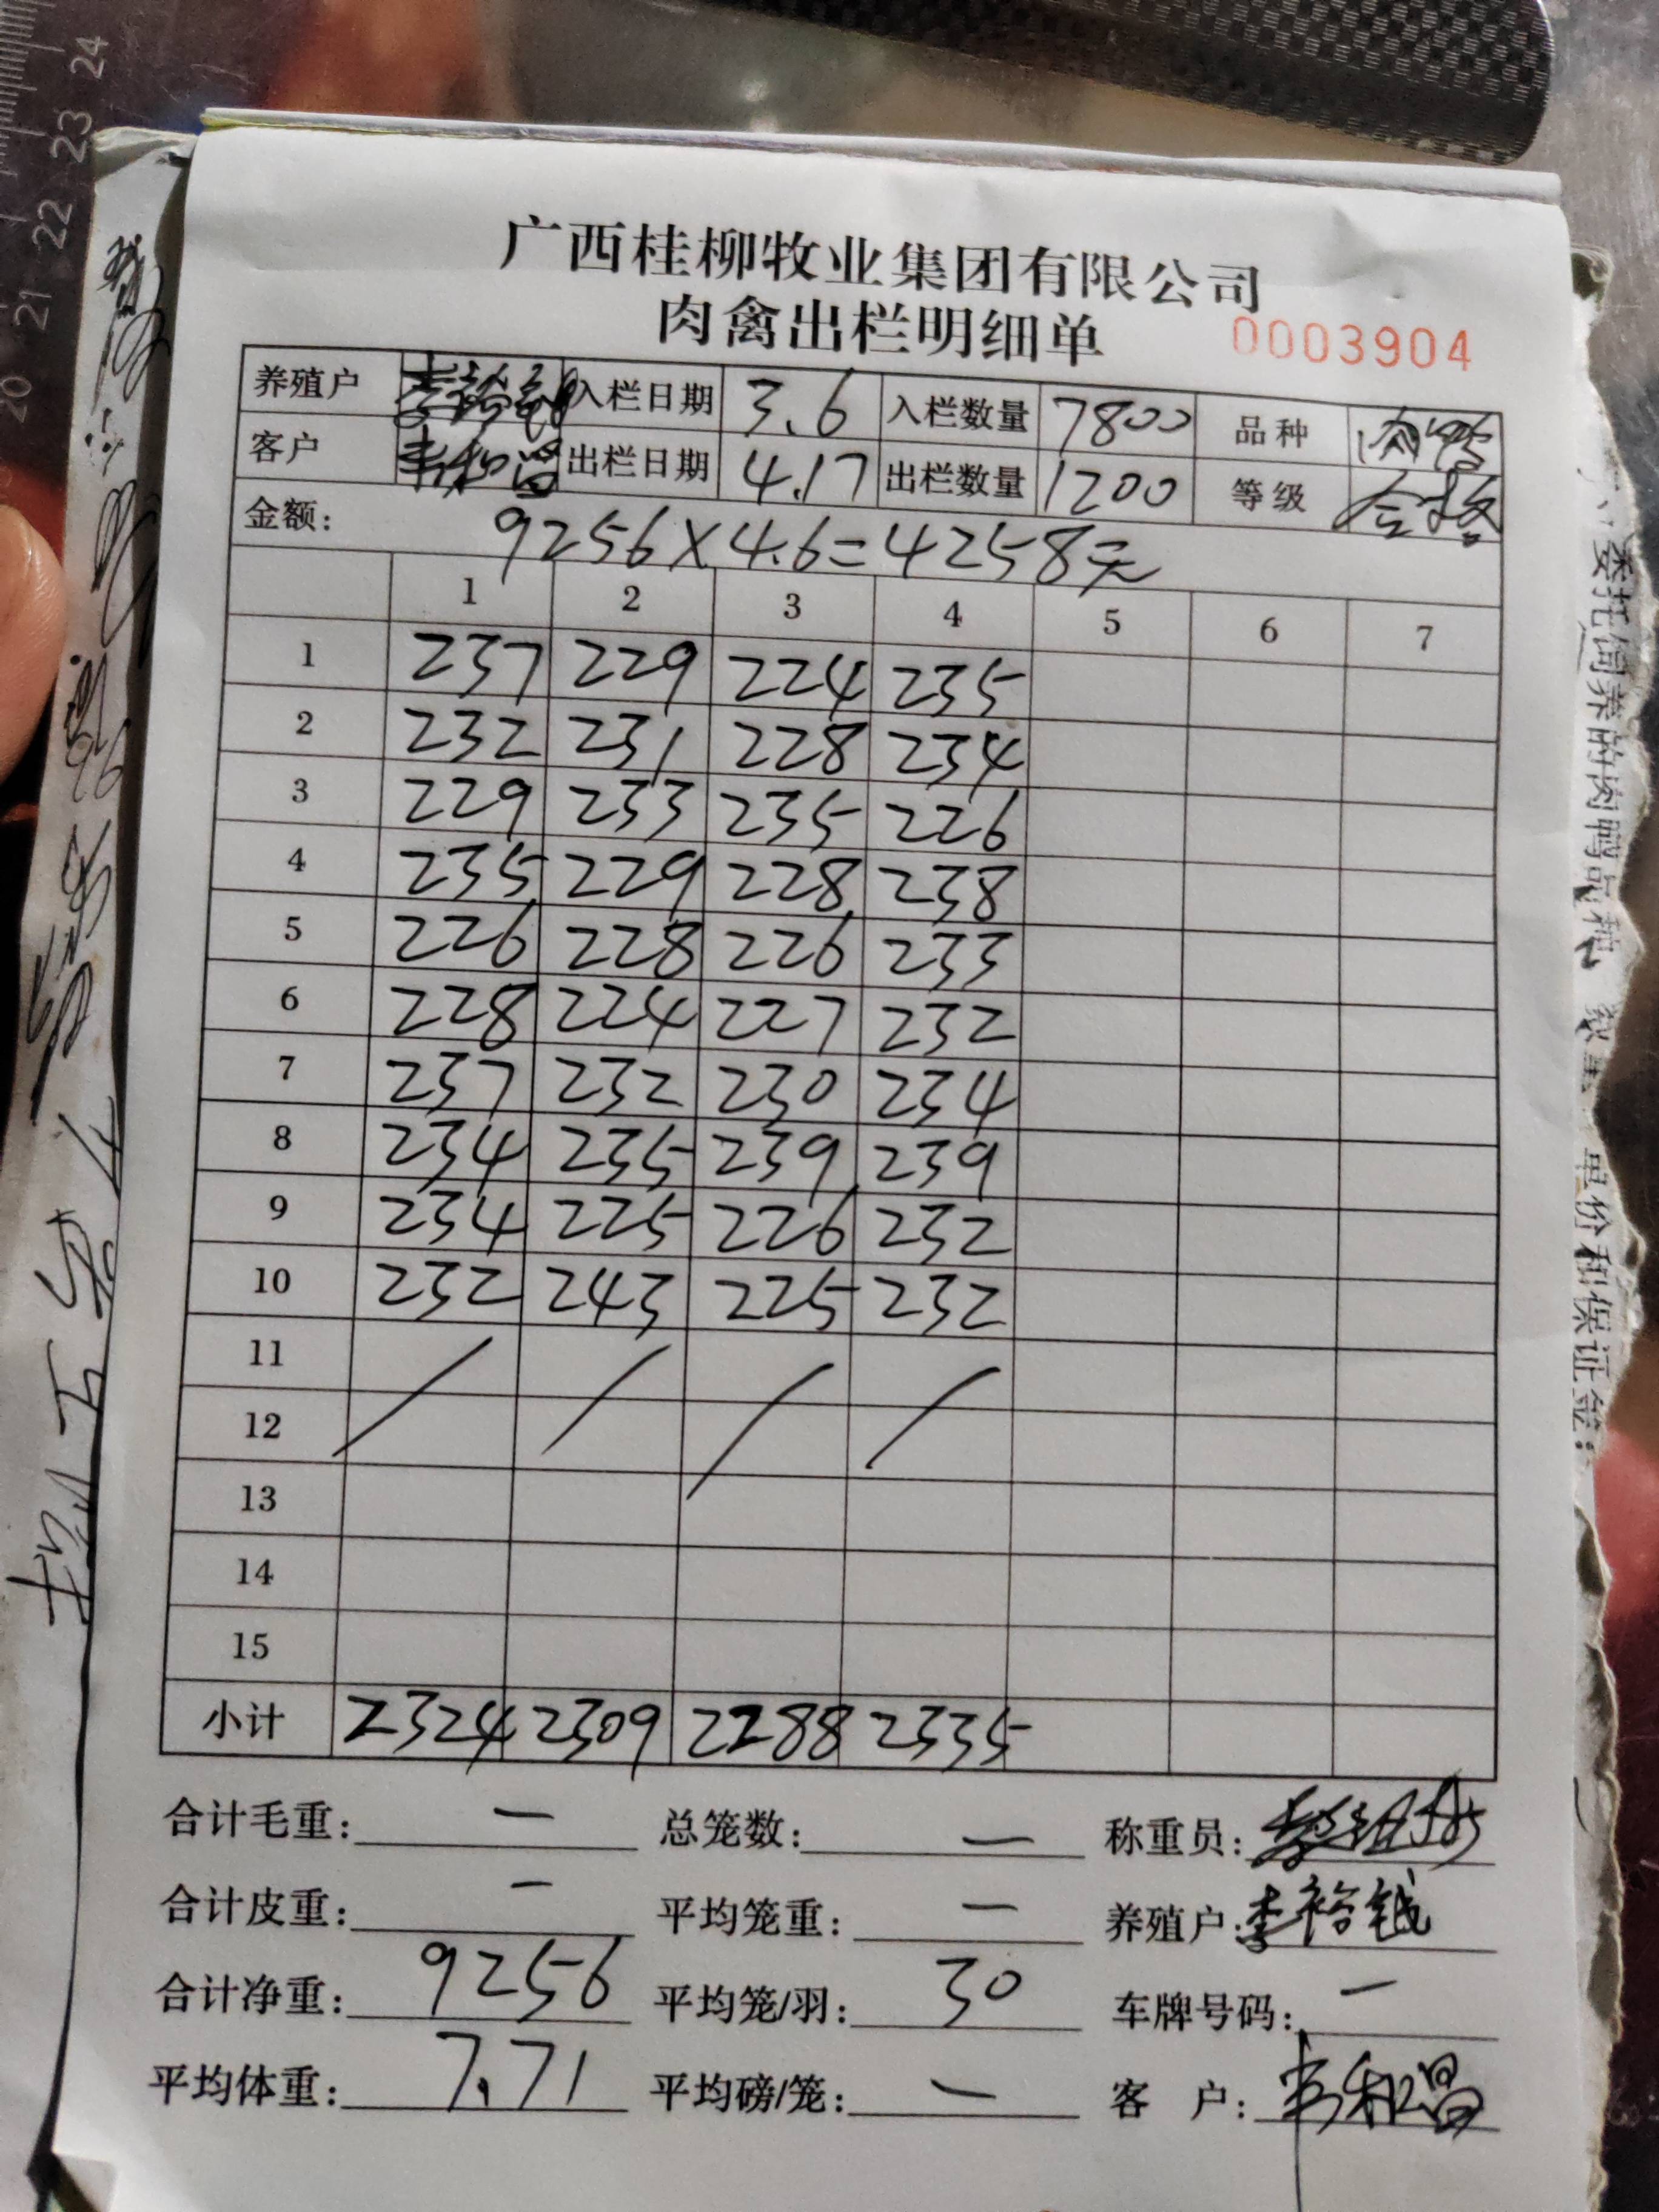 广西桂柳牧业集团有限公司
肉禽出栏明细单 0003904
养殖户 李裕钱 入栏日期 3.6 入栏数量 7800 品种 肉鸭
客户 韦和昌 出栏日期 4.17 出栏数量 1200 等级 合格
金额: 9256×4.6=4258元
1 2 3 4 5 6 7
1 237 229 224 235
2 232 231 228 234
3 229 233 235 226
4 235 229 228 238
5 226 228 226 233
6 228 224 227 232
7 237 232 230 234
8 234 235 239 239
9 234 225 226 232
10 232 243 225 232
11
12
13
14
15
小计 2324 2309 2288 2335
合计毛重: — 总笼数: — 称重员:
合计皮重: — 平均笼重: — 养殖户: 李裕钱
合计净重: 9256 平均笼/羽: 30 车牌号码: —
平均体重: 7.71 平均磅/笼: — 客 户: 韦和昌
委托饲养的肉鸭品种
单价和保证金:
24
23
22
21
20